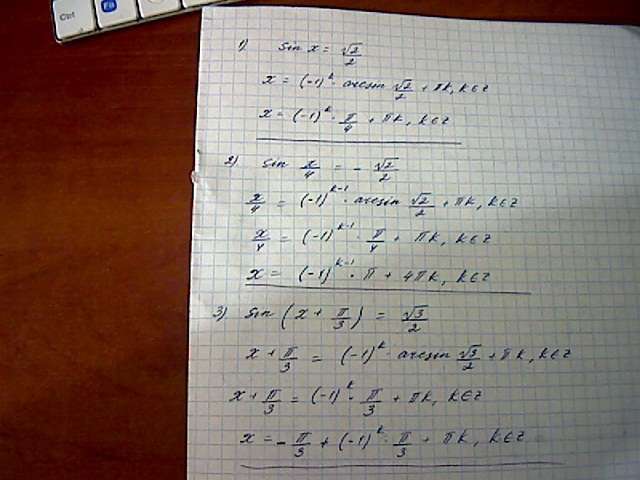 Ctrl
1) sin x = √2/2
x = (-1)^k · arcsin √2/2 + πk, k∈z
x = (-1)^k · π/4 + πk, k∈z
2) sin x/4 = - √2/2
x/4 = (-1)^k-1 · arcsin √2/2 + πk, k∈z
x/4 = (-1)^k-1 · π/4 + πk, k∈z
x = (-1)^k-1 · π + 4πk, k∈z
3) sin (x + π/3) = √3/2
x + π/3 = (-1)^k · arcsin √3/2 + πk, k∈z
x + π/3 = (-1)^k · π/3 + πk, k∈z
x = - π/3 + (-1)^k · π/3 + πk, k∈z